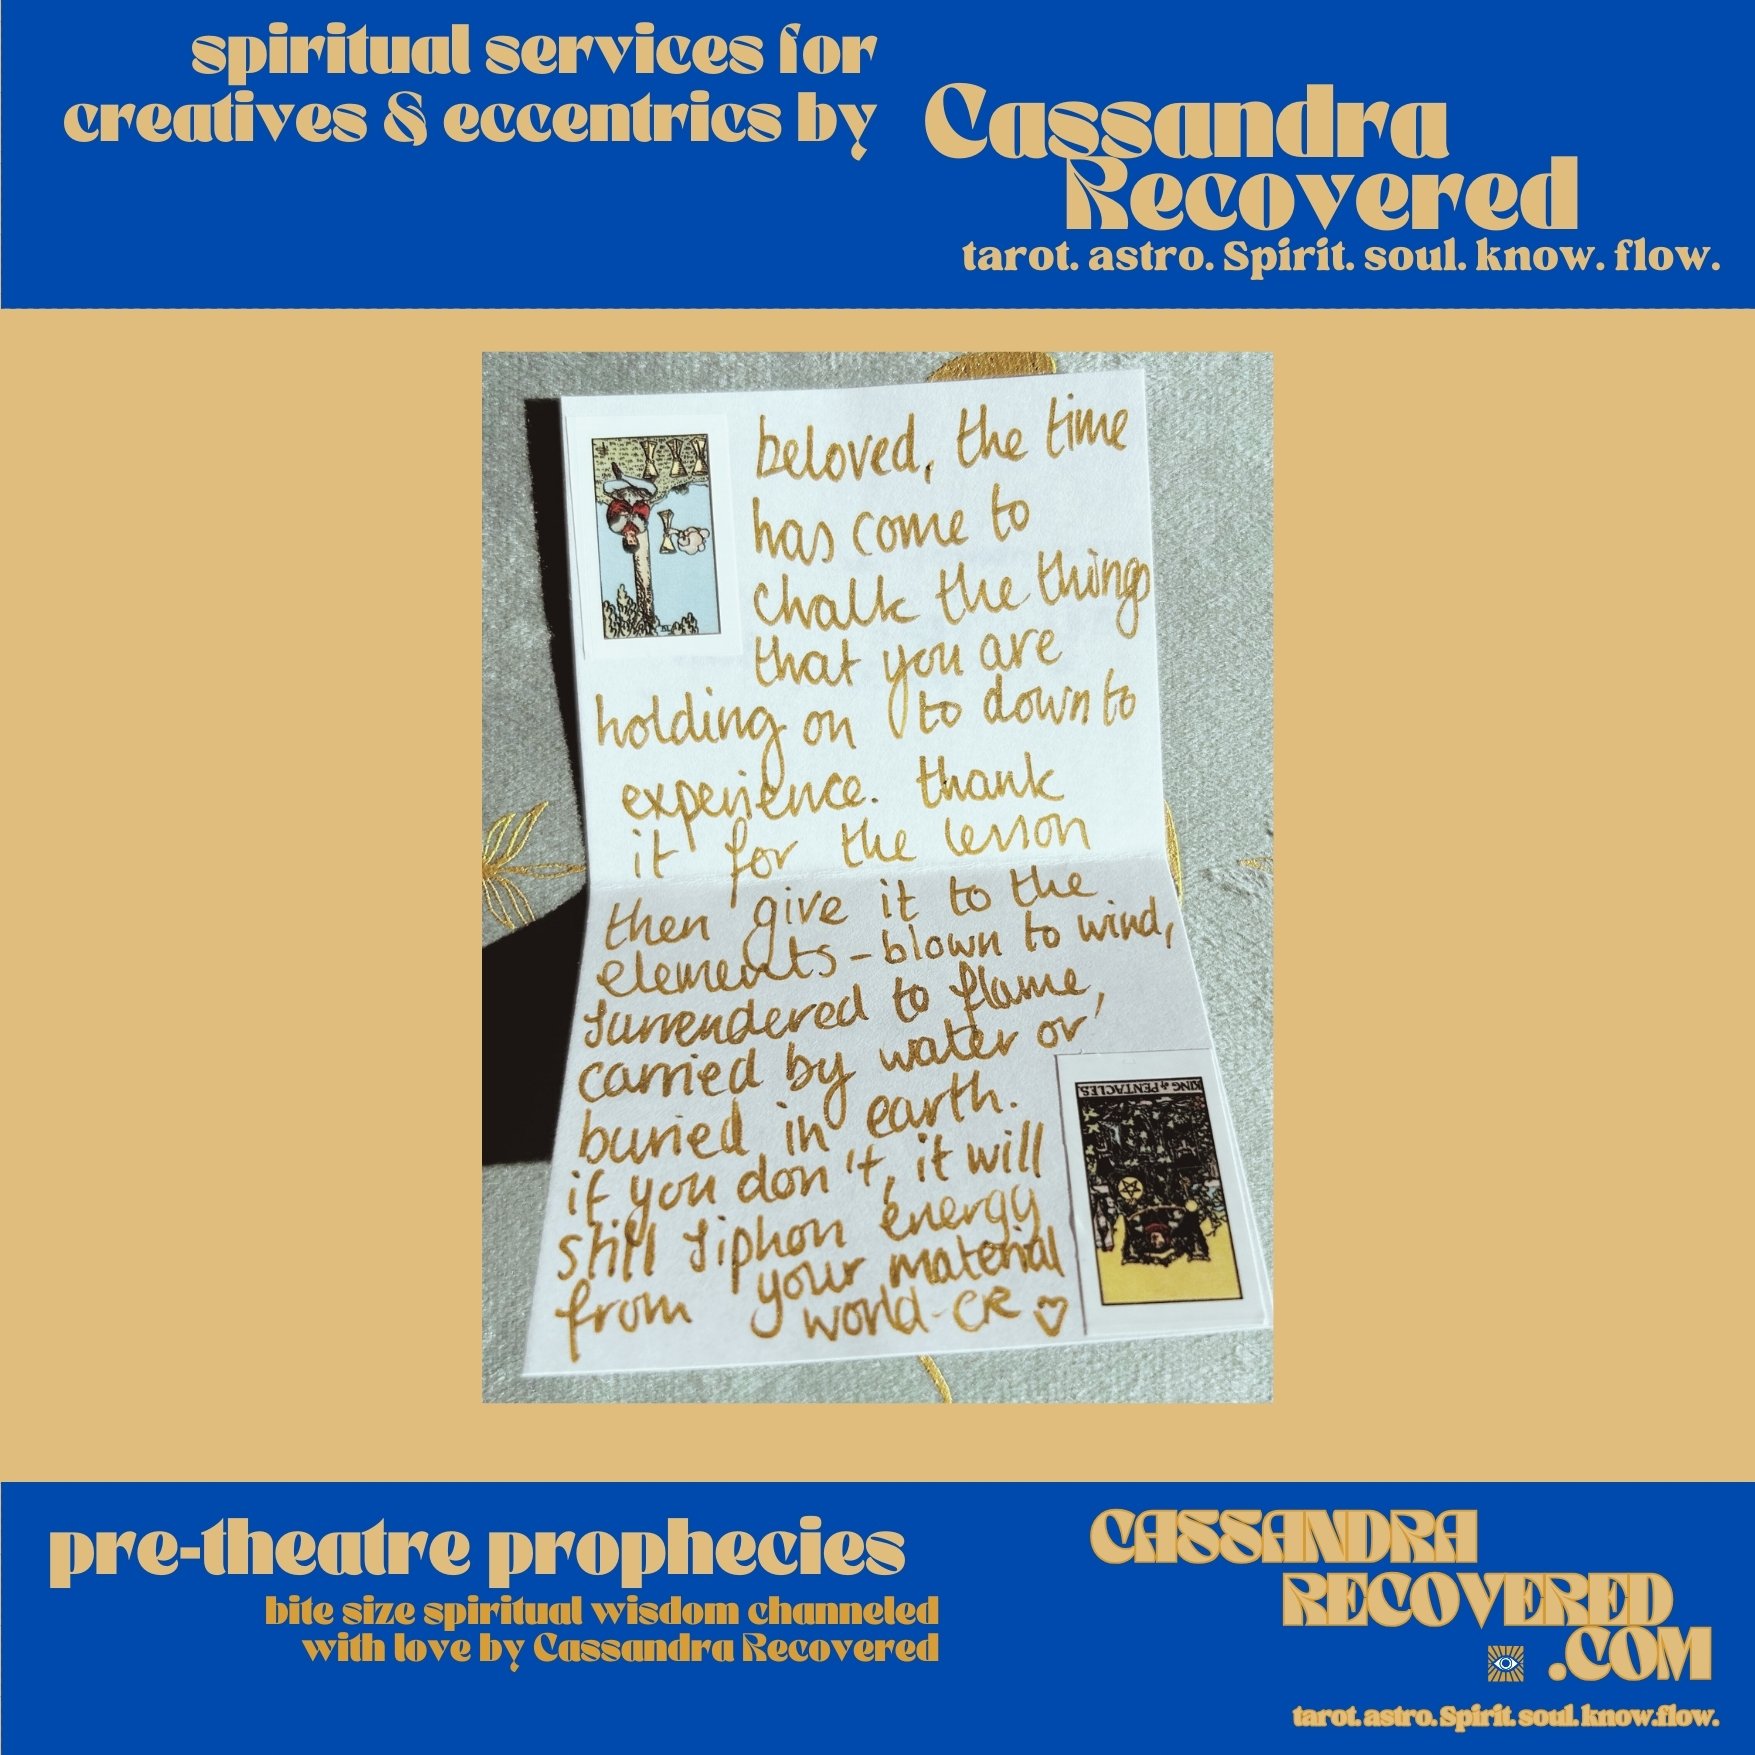 spiritual services for
creatives & eccentrics by
Cassandra
Recovered
tarot. astro. Spirit. soul. know. flow.
beloved, the time
has come to
chalk the things
that you are
holding on to down to
experience. thank
it for the lesson
then give it to the
elements - blown to wind,
surrendered to flame,
carried by water or
buried in earth.
if you don't, it will
still siphon energy
from your material
world - CR
KING of PENTACLES
IV
pre-theatre prophecies
bite size spiritual wisdom channeled
with love by Cassandra Recovered
CASSANDRA
RECOVERED
.COM
tarot. astro. Spirit. soul. know.flow.